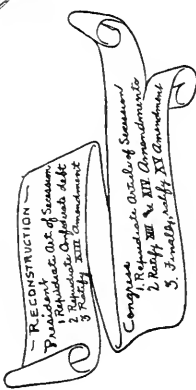 — RECONSTRUCTION —
President
1 Repudiate Act of Secession
2 Repudiate Confederate debt
3 Ratify XIII Amendment
Congress
1. Repudiate Article of Secession
2. Ratify XIII & XIV Amendments
3. Finally, ratify XV Amendment